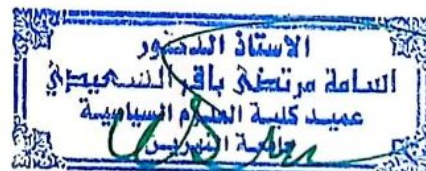 الاستاذ الدكتور
اسامة مرتضى باقر السعيدي
عميد كلية العلوم السياسية
جامعة النهرين